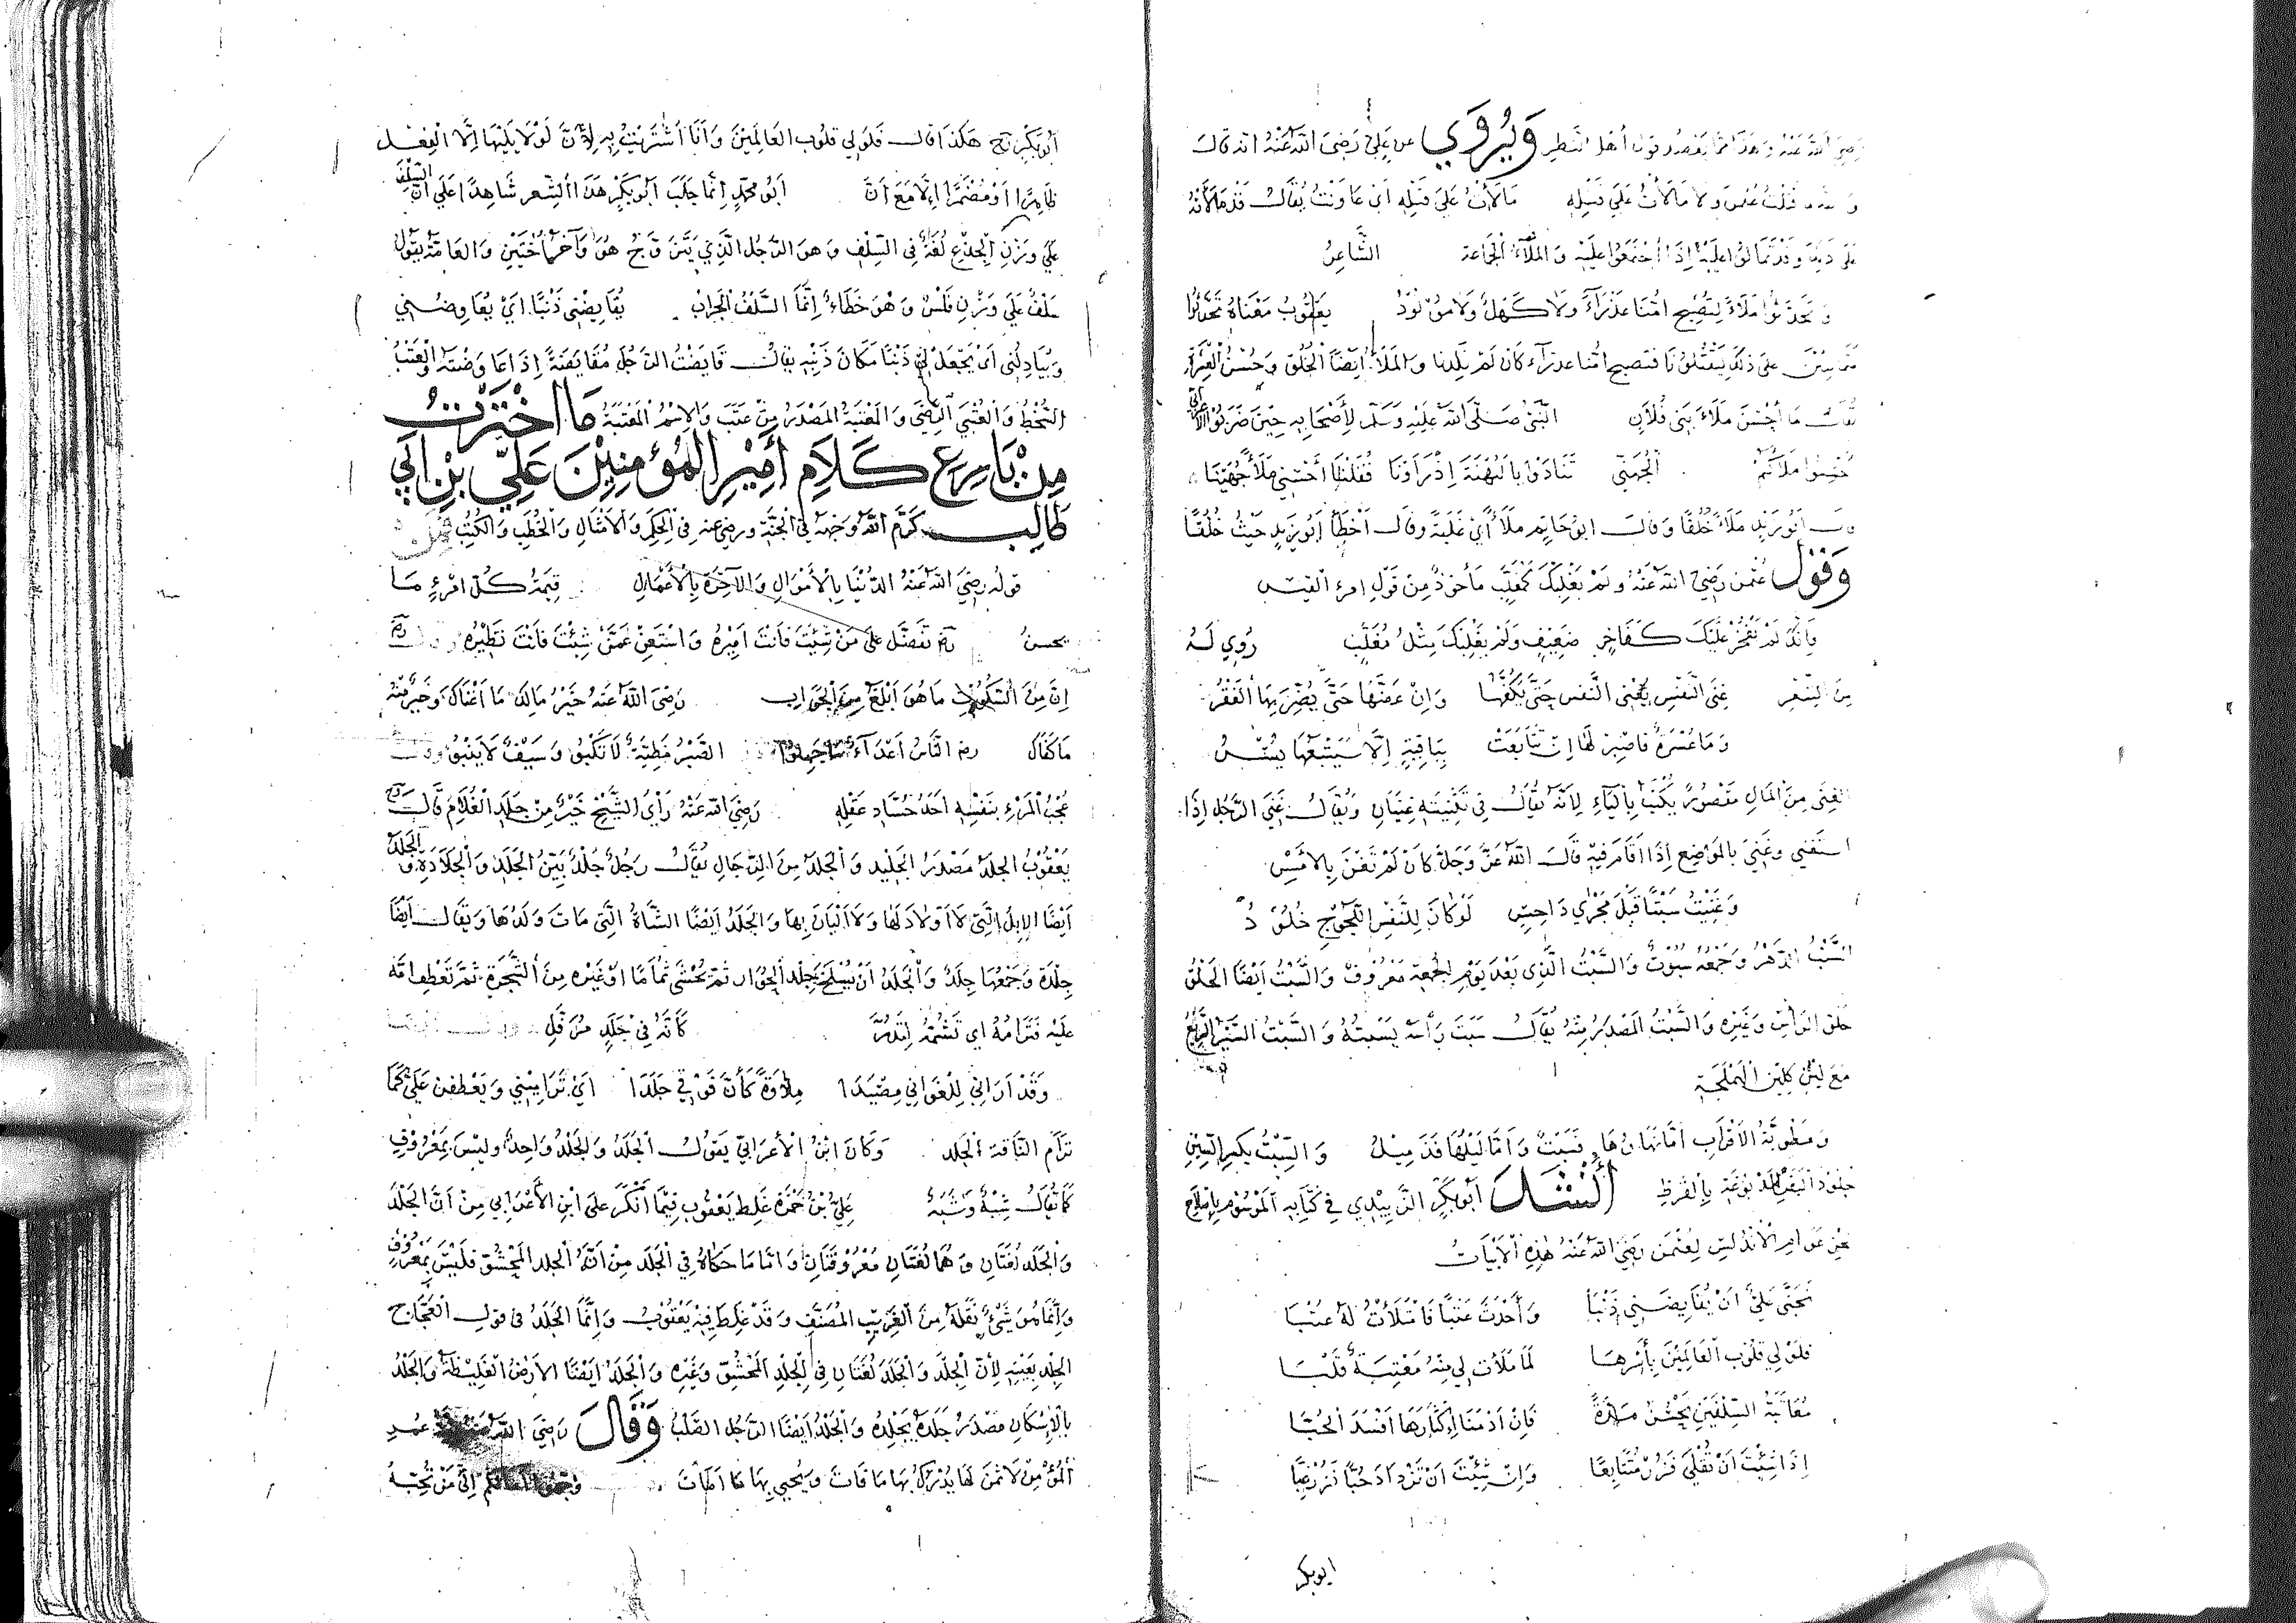 رضي الله عنه وهذا مما يعضد قول أهل النظر وَيُرْوَي عن عَلِيّ رَضِيَ اللهُ عَنْهُ انه قال
و قتلت عثمن ولا مَالَأْتُ عَلَى قَتْلِهِ مَالَأْتُ عَلَى قَتْلِهِ أي عَاوَنْتُ يُقَالُ قَدْ مَالَأْتُهُ
على وَقَدْ تَمَالَؤُا عَلَيْهِ إذَا اجْتَمَعُوا عَلَيْهِ وَالْمَلَأُ الْجَمَاعَة الشَّاعِرُ
وَتَحَدَّثُوا مَلَأً لِتُصْبِحَ امُّنَا عَذْرَآءُ وَلَا كَهْلٌ وَلَا مَوْلُودُ يَعْقُوبُ مَعْنَاهُ تَحَدَّثُوا
على ذلك لِيَقْتُلُونَا فتصبح امُّنا عذرآء كان لَمْ تَلِدْنا وَالْمَلَأُ ايْضًا الْخُلُقُ وَحُسْنُ الْعِشْرَةِ
يُقَالُ مَا أَحْسَنَ مَلَأَ بَنِي فُلَانٍ النَّبِيُّ صَلَّى اللهُ عَلَيْهِ وَسَلَّمَ لِأَصْحَابِهِ حِيْنَ ضَرَبُوا الأعرابي
أَحْسِنُوا مَلَأَكُمْ الْجُهَنِيّ تَنَادَوْا يا لَبُهْثَةَ إذْ رَأَوْنَا فَقُلْنَا أَحْسِنِي مَلَأً جُهَيْنَا
وقال أبُو زَيْدٍ مَلَأً خُلُقًا وَقَالَ ابُوْ حَاتِمٍ مَلَأً أَيْ غَلَبَةً وقَالَ اخْطَأَ أبُو زَيْدٍ حَيْثُ خُلُقًا
وَقَوْلُ عُثْمن رَضِيَ اللهُ عَنْهُ ولَمْ يَغْلِبْكَ كَمُغَلَّبٍ مَأخوذٌ مِنْ قَوْلِ امرءِ القيس
فَإنَّكَ لَمْ يَفْخَرْ عَلَيْكَ كَفَاخِرٍ ضَعِيْفٍ وَلَمْ يَغْلِبْكَ مِثْلُ مُغَلَّبِ رُوِي لَهُ
مِنَ الشِّعْرِ غِنَى النَّفْسِ يُغْنِي النَّفْسَ حَتَّى يَكُفَّهَا وَإنْ عَضَّهَا حَتَّى يُضِرَّ بِهَا الْفَقْرُ
وَمَا عُسْرَةٌ فَاصْبِرْ لَهَا إنْ تَتَابَعَتْ بِبَاقِيَةٍ إلَّا سَيَتْبَعُهَا يُسْرُ
الغِنَى مِنَ الْمَالِ مَقْصُورٌ يُكْتَبُ بِالْيَآءِ لِأَنَّهُ يُقَالُ فِي تَثْنِيَتِهِ غِنْيَانِ وَيُقَالُ غَنِيَ الرَّجُلُ إذَا
استغنى وَغَنِيَ بالْمَوْضِعِ إذَا اقَامَ فِيْهِ قَالَ اللهُ عَزَّ وَجَلَّ كَأَنْ لَمْ تَغْنَ بِالْأَمْسِ
وَغَنِيْتُ سَبْتًا قَبْلَ مَجْرَى دَاحِسٍ لَوْ كَانَ لِلنَّفْسِ اللَّجُوْجِ خُلُوْدُ
السَّبْتُ الدَّهْرُ وَجَمْعُهُ سُبُوْتٌ وَالسَّبْتُ الَّذِي بَعْدَ يَوْمِ الْجُمعَة مَعْرُوْفٌ وَالسَّبْتُ أَيْضًا الْحَلْقُ
حَلْقُ الرَّأسِ وَغَيْرِهِ وَالسَّبْتُ الْمَصْدَرُ مِنْهُ يُقَالُ سَبَتَ رَأسَهُ يَسْبِتُهُ وَالسَّبْتُ السَّيْرُ السَّرِيْعُ
مَعَ لِيْنٍ كَلِيْنِ الْهَمْلَجَةِ
وَمَطْوِيَّةُ الْأَقْرَابِ امَّا نَهَارُهَا فَسَبْتٌ وَامَّا لَيْلُهَا فَذَمِيْلُ وَالسِّبْتُ بِكَسْرِ السِّيْنِ
جُلُوْدُ الْبَقَرِ الْمَدْبُوغَةِ بِالْقَرَظِ أَنْشَدَ أَبُو بَكْرٍ الزُّبَيْدِي فِي كِتَابِهِ الْمَوْسُوْمِ بِإصْلَاحِ
لحن عَوَامِ الْأَنْدَلُسِ لِعُثْمٰن رَضِيَ اللهُ عَنْهُ هٰذِهِ الْأَبْيَاتُ
تَجَنَّى عَلَيَّ أَنْ يُقَايِضَنِي ذَنْبَا وَأَحْدَثَ عَتْبًا فَامْتَلَأْتُ لَهُ عُتْبَا
فَلَوْ لِي قُلُوْبُ الْعَالَمِيْنَ بِأَسْرِهَا لَمَا مَلَأَتْ لِي مِنْهُ مَعْتِبَةٌ قَلْبَا
مُعَاتَبَةُ السِّلْفَيْنِ تَحْسُنُ مَرَّةً فَإنْ أَدْمَنَا إكْثَارَهَا أَفْسَدَ الْحُبَّا
إذَا شِئْتَ أَنْ تُقْلَى فَزُرْ مُتَتَابِعًا وَإنْ شِئْتَ أَنْ تَزْدَادَ حُبًّا فَزُرْ غِبًّا
ابوبكر
أَبُو بَكْرٍ هَكَذَا قَالَ فَلَوْ لِي قلُوب العَالَمِيْنَ وَأَنَا أَشْتَرَيْتُ بِهِ لِأَنَّ لَوْ لَا يَلِيْهَا إلَّا الْفِعْلُ
ظَاهِرًا أَوْ مُضْمَرًا إلَّا مَعَ أَنَّ أَبُو مُحَمَّدٍ إنَّمَا جَلَبَ أَبُو بَكْرٍ هَذَا الشِّعر شَاهِدًا عَلَى أَنَّ السِّلْفَ
عَلَى وَزْنِ الْجِذْعِ لُغَةٌ فِي السَّلِفِ وَهوَ الرَّجُلُ الَّذِي يَتَزَوَّجُ هُوَ وَآخَرُ أُخْتَيْنِ وَالعَامَّةُ يَقُوْلُ
سَلْفٌ عَلَى وَزْنِ فَلْسٍ وَهْوَ خَطَاءٌ إنَّمَا السَّلْفُ الْجِرَابُ يُقَايِضُنِي ذَنْبًا أَيْ يُعَاوِضُنِي
وَيُبَادِلُنِي أَيْ يَجْعَلُ لِي ذَنْبًا مَكَانَ ذَنْبِهِ يقَالُ قَايَضْتُ الرَّجُلَ مُقَايَضَةً إذَا عَاوَضْتَهُ وَالْعَتْبُ
السُّخْطُ وَالْعُتْبَى الرِّضَى وَالْمَعْتَبَةُ الْمَصْدَرُ مِنْ عَتَبَ وَالْاسْمُ الْمَعْتِبَةُ مَا اخْتَرْتُ
مِنْ بَارِعِ كَلَامِ أَمِيْرِ الْمُؤمِنِيْنَ عَلِيّ بْنِ أَبِي
طَالِبٍ كَرَّمَ اللهُ وَجْهَهُ فِي الْجَنَّةِ ورضي عنه فِي الْحِكَمِ وَالْأَمْثَالِ وَالْخُطَبِ وَالْكُتُبِ
قَوْلُهُ رَضِيَ اللهُ عَنْهُ الدُّنْيَا بِالْأَمْوَالِ وَالْآخِرَةُ بِالْأَعْمَالِ قِيْمَةُ كُلِّ امْرِءٍ مَا
يُحسنُ تَفَضَّلْ عَلَى مَنْ شِئْتَ فَأَنْتَ أَمِيْرُهُ وَاسْتَغْنِ عَمَّنْ شِئْتَ فَأَنْتَ نَظِيْرُهُ
إنَّ مِنَ السُّكُوْتِ مَا هُوَ أَبْلَغُ مِنَ الْجَوَابِ رَضِيَ اللهُ عَنْهُ خَيْرُ مَالِكَ مَا أَغْنَاكَ وَخَيْرٌ مِنْهُ
مَا كَفَاكَ النَّاسُ أَعْدَآءُ مَا جَهِلُوْا الصَّبْرُ مَطِيَّةٌ لَا تَكْبُو وَسَيْفٌ لَا يَنْبُو وقال
عُجْبُ الْمَرْءِ بِنَفْسِهِ أَحَدُ حُسَّادِ عَقْلِهِ رَضِيَ اللهُ عَنْهُ رَأيُ الشَّيْخِ خَيْرٌ مِنْ جَلَدِ الْغُلَامِ قَالَ
يَعْقُوْبُ الجَلَدُ مَصْدَرُ الْجَلِيْدِ وَالْجَلْدُ مِنَ الرِّجَالِ يُقَالُ رَجُلٌ جَلْدٌ بَيِّنُ الْجَلَدِ وَالْجَلَادَةِ وَ الجَلَدُ
أَيْضًا الإبِلُ الَّتِي لَا أَوْلَادَ لَهَا وَلَا أَلْبَانَ بِهَا وَالجَلَدُ أيْضًا الشَّاةُ الَّتِي مَاتَ وَلَدُهَا وَيُقَالُ أَيْضًا
جَلَدَة وَجَمْعُهَا جِلَدٌ وَالْجَلَدُ أَنْ يُسْلَخَ جِلْدُ الحُوَارِ ثُمَّ يُحْشَى ثُمَامًا أَوْ غَيْرَهُ مِنَ الشَّجَرِ ثُمَّ تُعْطَفُ أُمُّهُ
عَلَيْهِ فَتَرْأَمُهُ أي تَشَمُّهُ لِتَدُرَّ كَأَنَّهُ فِي جَلَدٍ مُرَفَّلِ
وَقَدْ أَرَانِي لِلْغَوَانِي مِصْيَدَا مِلَاوَةً كَأَنَّ فَوْقِي جَلَدَا أَيْ تَرْأَمْنَنِي وَيَعْطِفْنَ عَلَيَّ كَمَا
تَرْأَمُ النَّاقَةُ الْجَلَد وَكَانَ ابْنُ الْأَعْرَابِيّ يَقُوْلُ الْجَلَدُ وَالجِلْدُ وَاحِدٌ وَلَيْسَ بِمَعْرُوْفٍ
كَمَا يُقَالُ شِبْهٌ وَشَبَهٌ عَلِيُّ بْنُ حَمْزَةَ غَلِطَ يَعْقُوْبُ فِيْمَا أَنْكَرَ عَلَى ابْنِ الْأَعْرَابِي مِنْ أَنَّ الجِلْدَ
وَالْجَلَدَ لُغَتَانِ وَهُمَا لُغَتَانِ مَعْرُوْفَتَانِ وَامَّا مَا حَكَاهُ فِي الْجَلَدِ مِنْ أَنَّهُ الْجِلْدُ الْمَحْشُوّ فَلَيْسَ بِمَعْرُوْفٍ
وَإنَّمَا هُوَ شَيْءٌ نَقَلَهُ مِنَ الْغَرِيْبِ الْمُصَنَّفِ وَقَدْ غَلِطَ فِيْهِ يَعْقُوْبُ وَإنَّمَا الْجَلَدُ فِي قَوْلِ الْعَجَّاجِ
الْجِلْدُ بِعَيْنِهِ لِأَنَّ الْجِلْدَ وَالْجَلَدَ لُغَتَانِ فِي الْجِلْدِ الْمَحْشُوِّ وَغَيْرِهِ وَالْجَلَدُ أَيْضًا الْأَرْضُ الْغَلِيْظَةُ وَالْجَلْدُ
بِالْإسْكَانِ مَصْدَرُ جَلَدَهُ يَجْلِدُهُ وَالْجَلْدُ أَيْضًا الرَّجُلُ الصُّلْبُ وَقَالَ رَضِيَ اللهُ عَنْهُ عُمُرِ
الْمُؤْمِنْ لَا ثَمَنَ لَهَا يُدْرِكُ بِهَا مَا فَاتَ وَيُحْيِي بِهَا مَا أَمَاتَ إلَى مَنْ تُحِبُّهُ